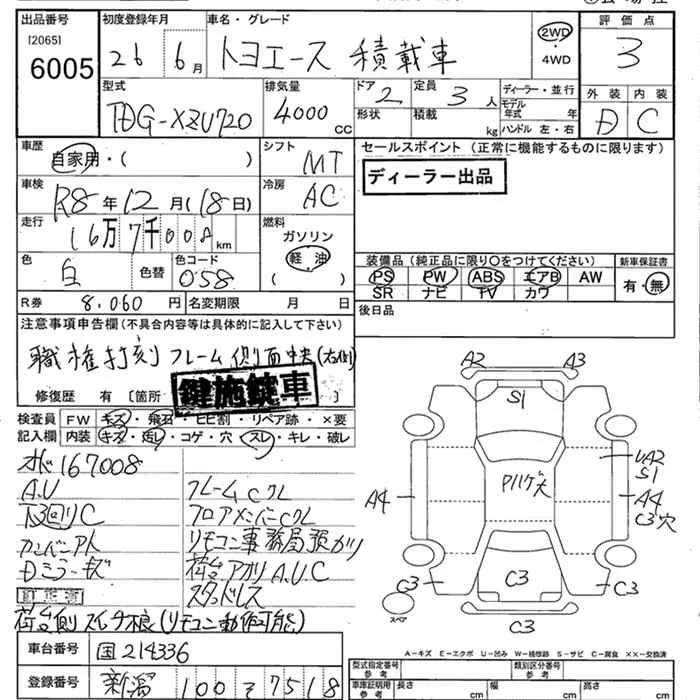 出品番号 初度登録年月 車名・グレード 評価点
[2065]
6005
26 6月 トヨエース 積載車 2WD・4WD 3
型式 排気量 ドア 定員 ディーラー・並行 外装 内装
TDG-XZU720 4000cc 2 3人 モデル年式 年 D C
形状 積載 kg ハンドル 左・右
車歴 シフト セールスポイント (正常に機能するものに限ります)
自家用・( ) MT
ディーラー出品
車検 冷房
R8年12月(18日) AC
走行 燃料
16万7千008km ガソリン
軽油
( )
色 色替 色コード 装備品(純正品に限り○をつけてください) 新車保証書
白 058 PS PW ABS エアB AW 有・無
SR ナビ TV カワ
R券 8,060円 名変期限 月 日 後日品
注意事項申告欄(不具合内容等は具体的に記入して下さい)
職権打刻 フレーム側面中央(右側)
修復歴 有 〔箇所 〕
鍵施錠車
検査員 FW キズ・飛石・ヒビ割・リペア跡・×要
記入欄 内装 キズ・汚レ・コゲ・穴・スレ・キレ・破レ
167008
A.U フレームCクレ
下回りC フロアメンバーCクレ
リモコン事務局預かり
Dミラーキズ 荷台アオリA.U.C
訂正済 スタッドレス
荷台側スイッチ損(リモコン動作可能)
A2 A3
S1
UA2
S1
A4 A4
C3穴
C3 C3 C3
C3
スペア
A-キズ E-エクボ U-凹み W-補修跡 S-サビ C-腐食 XX-交換済
車台番号 国214336
登録番号 新潟 100 そ 7518
型式指定番号 参考 類別区分番号 参考
車庫証明用 参考 長さ cm 幅 cm 高さ cm